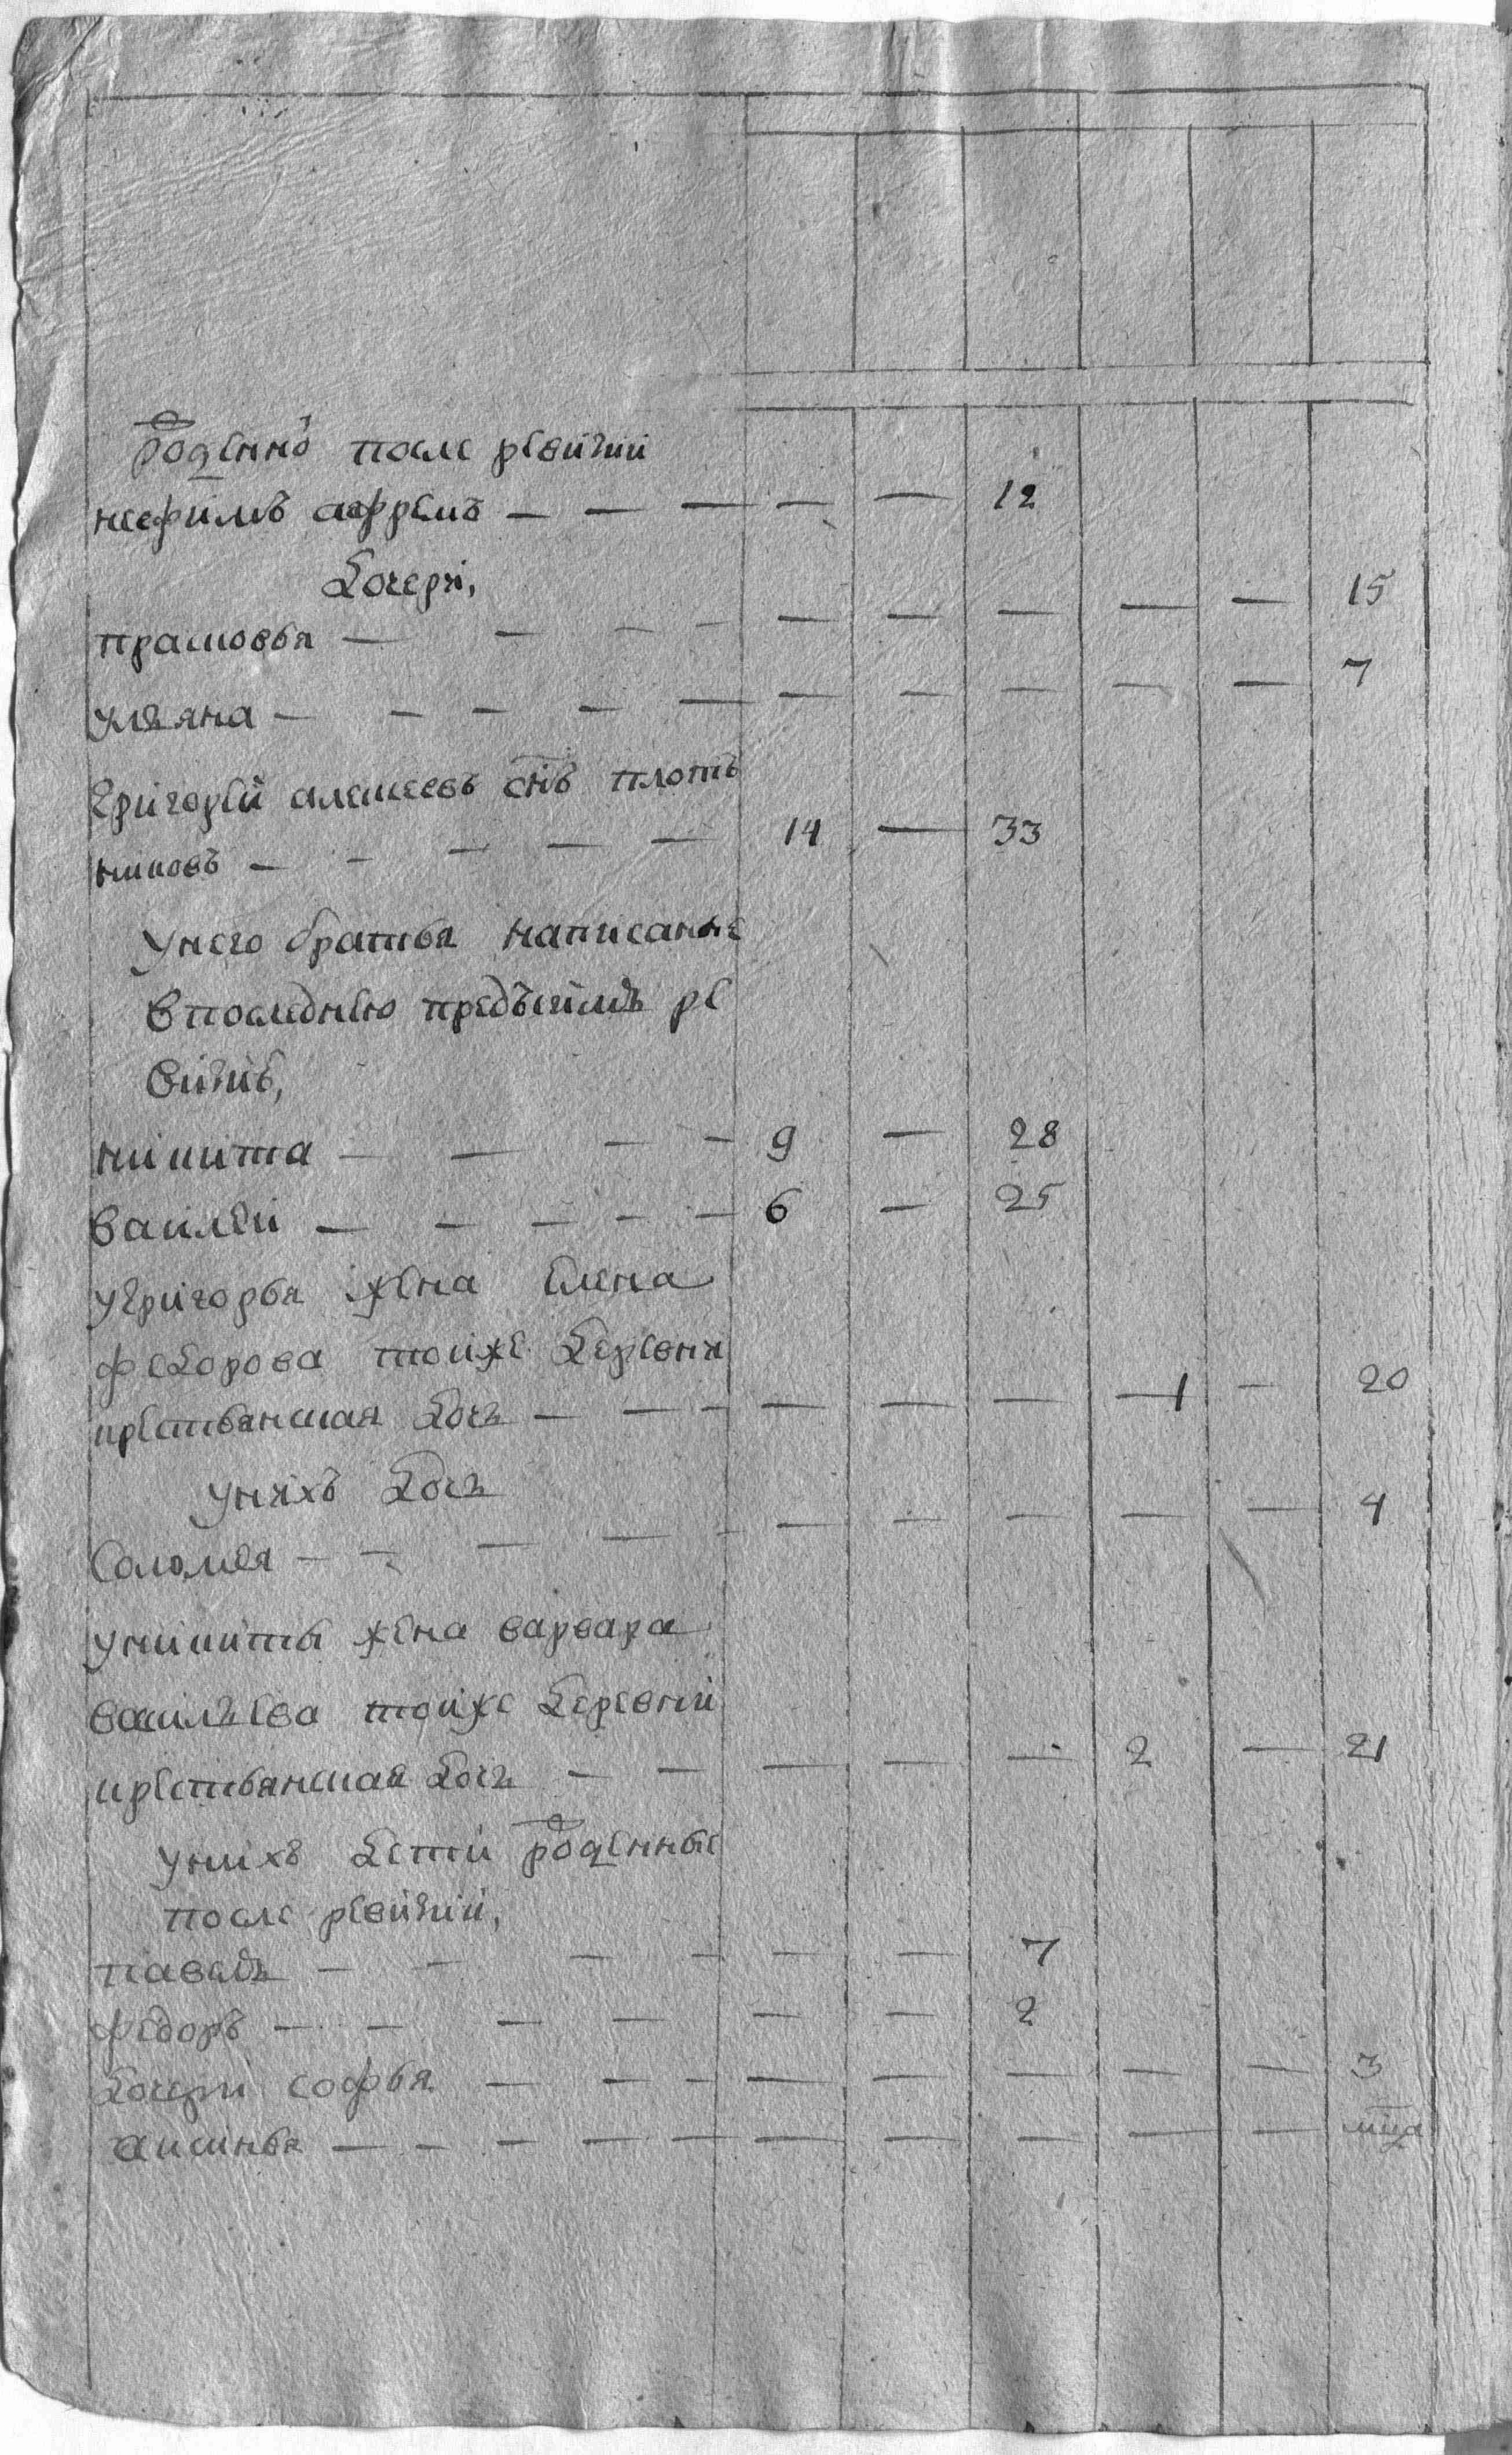 рожденно после ревизии
ефремъ — — — — — 12
дочери,
прасковья — — — — — — — — — 15
ульяна — — — — — — — — — — 7
григорей алексеевъ снъ плоть
никовъ — — — — — 14 — 33
унего братья написаные
впоследнею предъ симъ ре
визию,
никита — — — — 9 — 28
василей — — — — — 6 — 25
угригорья жена елена
федорова тойже деревни
крестьянская дочь — — — — — — 1 — 20
унихъ дочь
Соломея — — — — — — — — — — 4
уникиты жена варвара
васильева тойже деревни
крестьянская дочь — — — — — 2 — 21
унихъ дети рожденные
после ревизии,
павелъ — — — — — — 7
федоръ — — — — — — 2
дочери софья — — — — — — — — 3
аксинья — — — — — — — — — — мца